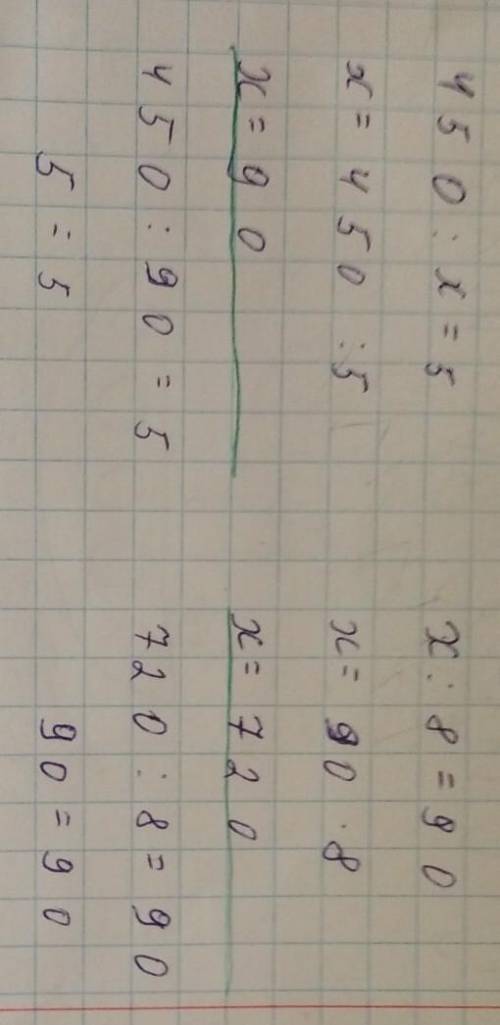 450 : x = 5
x = 450 : 5
x = 90
450 : 90 = 5
5 = 5
x : 8 = 90
x = 90 · 8
x = 720
720 : 8 = 90
90 = 90